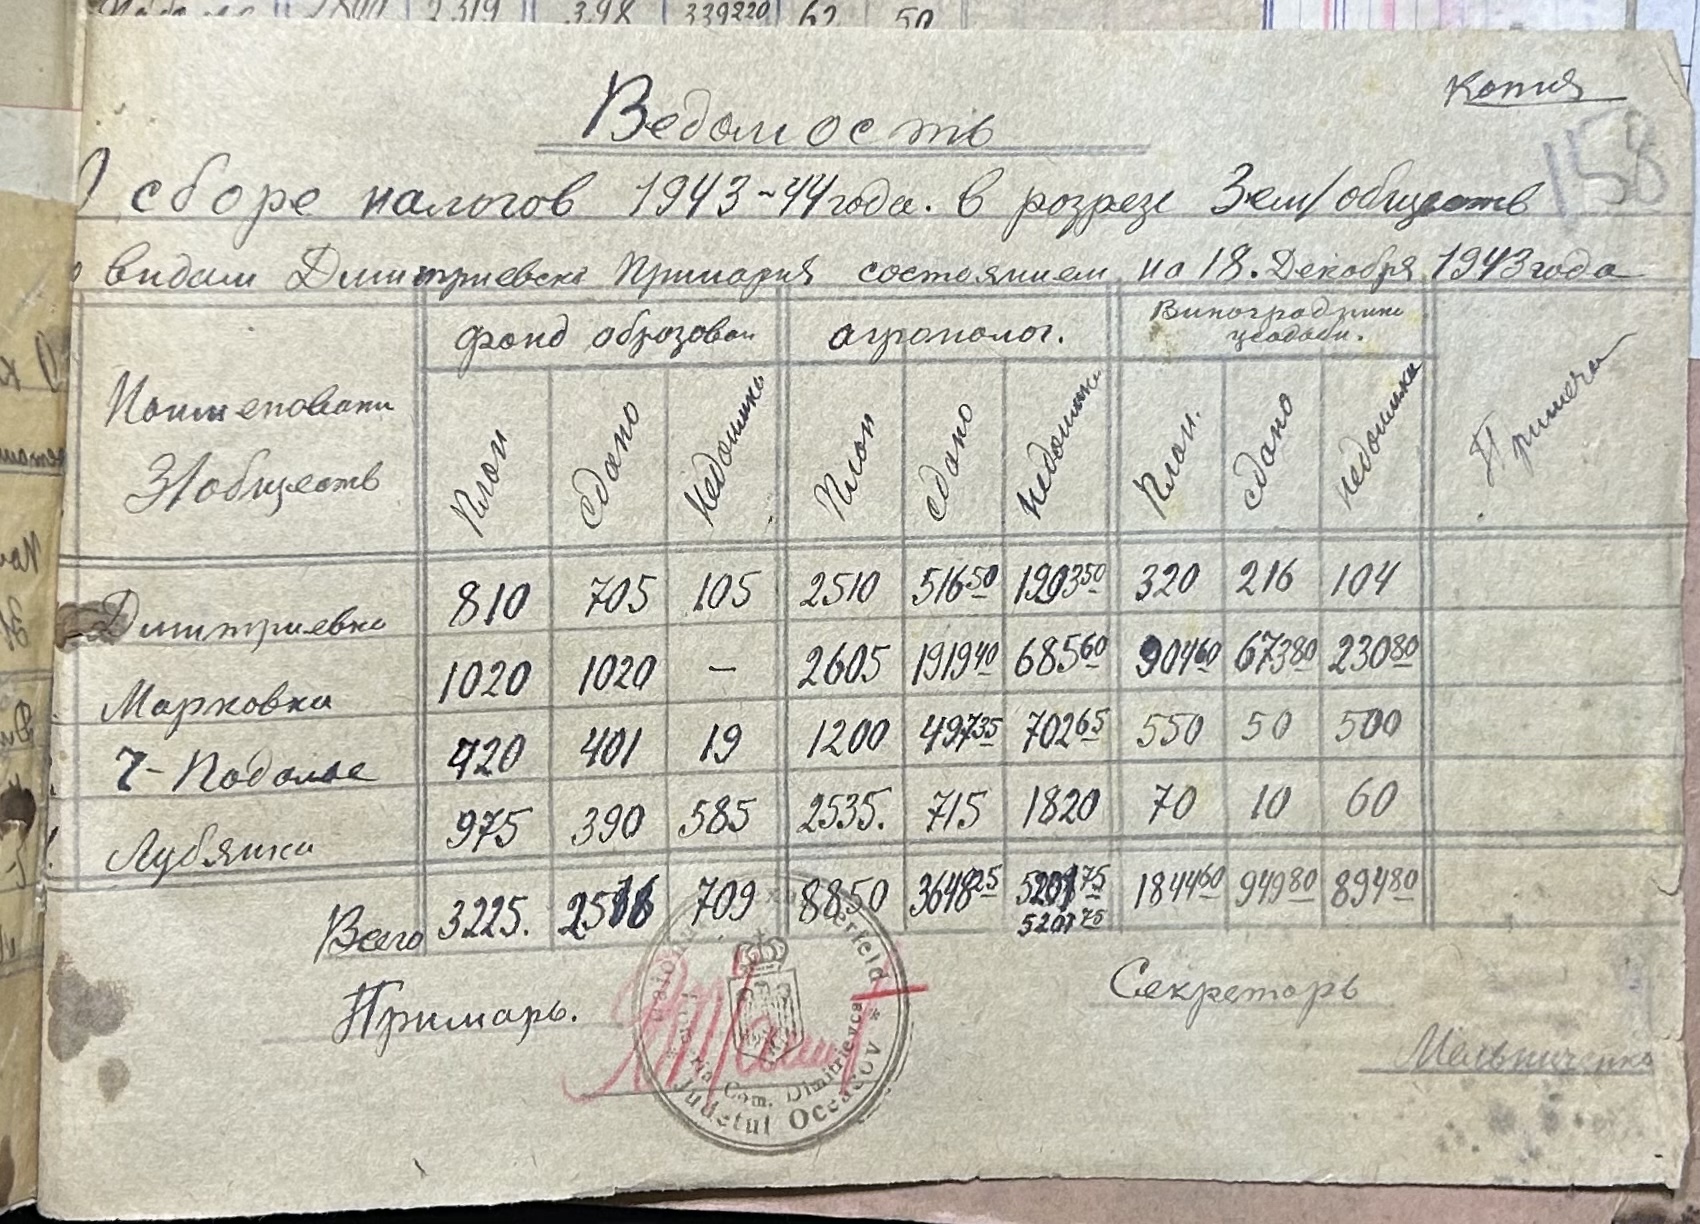 2800 2319 398 339220 62 50
Копия
158
Ведомость
О сборе налогов 1943-44 года. в розрезе Зем/обществ
видам Дмитриевска Примария состоянием на 18. Декабря 1943 года
Наименовани З/обществ | фонд образован | агрополог. | Виноградники
План | сдано | недоимка | План | сдано | недоимка | План. | сдано | недоимка | Примеча
Дмитриевка 810 705 105 2510 516 50 1993 50 320 216 104
Марковка 1020 1020 — 2605 1919 40 685 60 904 60 673 80 230 80
Ч-Подолье 420 401 19 1200 497 35 702 65 550 50 500
Лубянка 975 390 585 2535. 715 1820 70 10 60
Всего 3225. 2516 709 8850 3648 25 5201 75 1844 60 949 80 894 80
5201 75
Примарь.
Секреторь
Мельниченко
Com. Dimitrievca
Judetul Oceacov